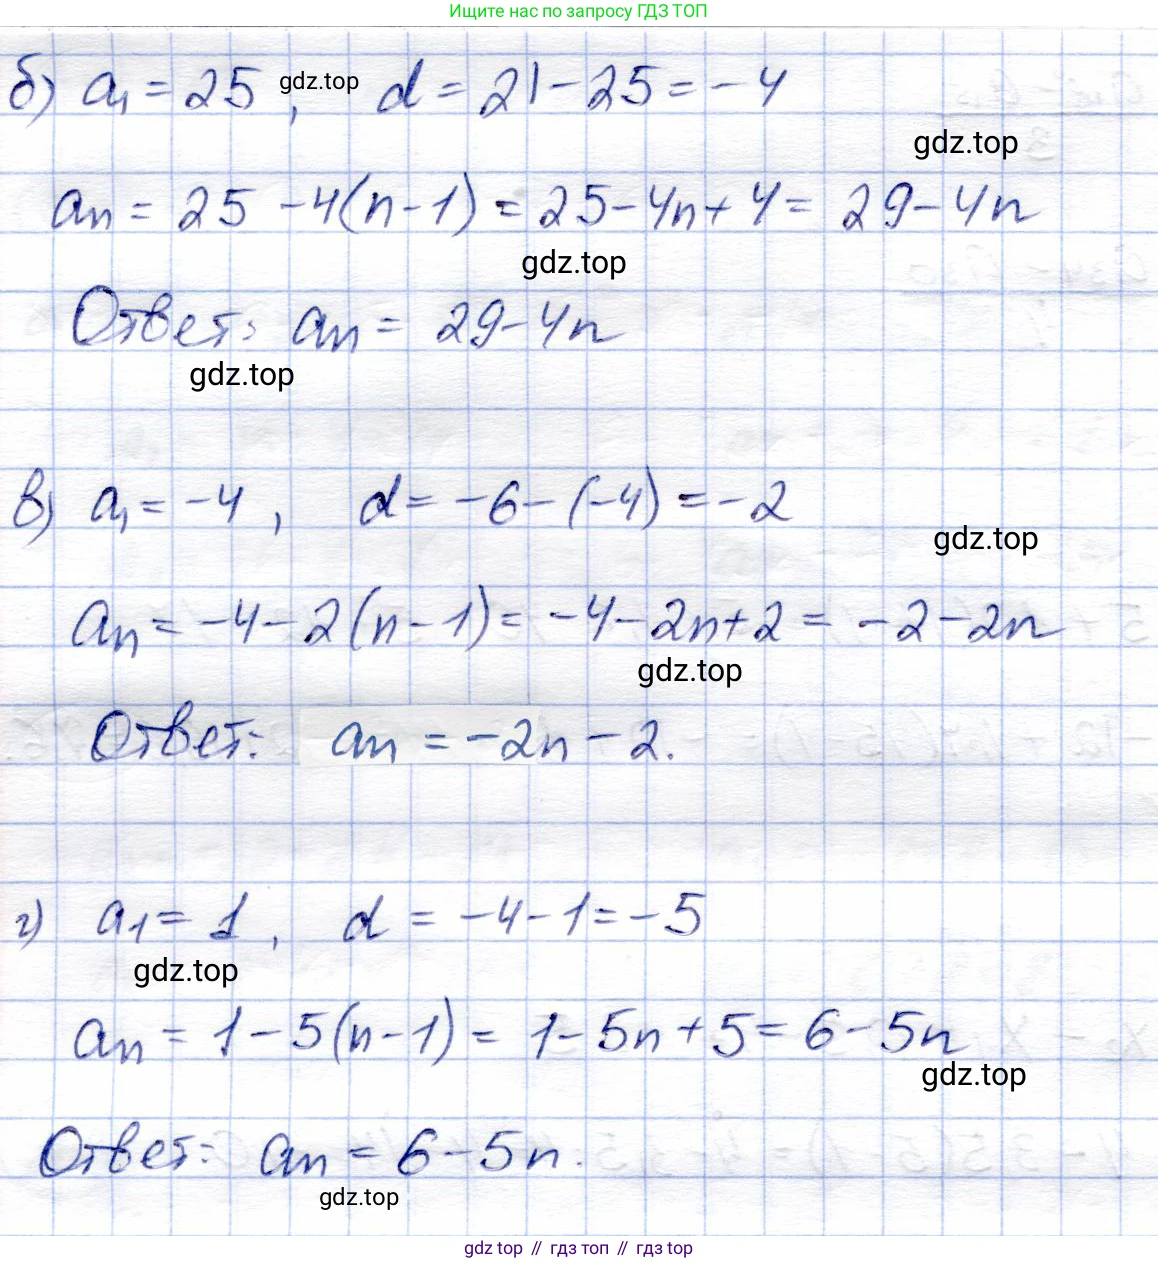 Ищите нас по запросу ГДЗ ТОП
б) a₁ = 25, d = 21 - 25 = -4
gdz.top
gdz.top
aₙ = 25 - 4(n - 1) = 25 - 4n + 4 = 29 - 4n
gdz.top
Ответ: aₙ = 29 - 4n
gdz.top
в) a₁ = -4, d = -6 - (-4) = -2
gdz.top
aₙ = -4 - 2(n - 1) = -4 - 2n + 2 = -2 - 2n
gdz.top
Ответ: aₙ = -2n - 2.
г) a₁ = 1, d = -4 - 1 = -5
gdz.top
aₙ = 1 - 5(n - 1) = 1 - 5n + 5 = 6 - 5n
gdz.top
Ответ: aₙ = 6 - 5n.
gdz.top
gdz top // гдз топ // гдз top